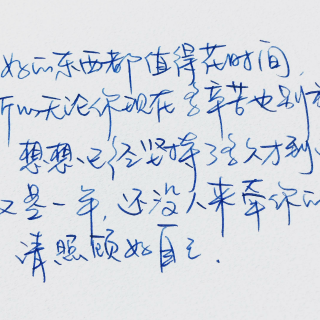 好的东西都值得花时间，
所以无论你现在多辛苦也别
想想已经坚持了多久才到
又是一年，还没人来牵你的
请照顾好自己．